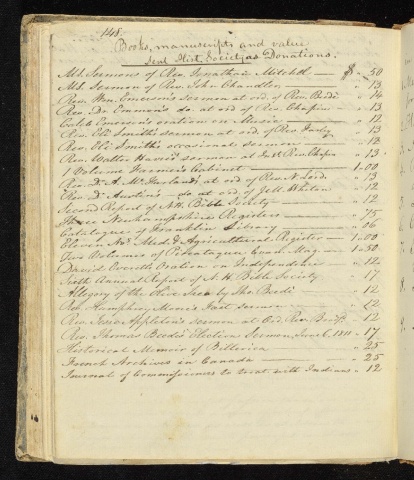 148.
Books, manuscripts and value
Sent Hist. Society as Donations.
MS. Sermons of Rev. Jonathan Mitchell — $ . 50
MS. Sermon of Rev. John Chandler — " 13
Rev. Wm. Emerson's sermon at ord. of Rev. Bede " 14
Rev. Dr. do. at ord. of Rev. Chapin — " 13
Caleb Emerson's oration on Music — " 12
Rev. Eli Smith's sermon at ord. of Rev. " 13
Rev. Eli Smith's occasional sermon — " 12
Rev. Walter Harris' sermon at Rev. " 13
1 Volume Farmer's Cabinet — 1.00
Rev. Dr. A. McFarland's at ord. of Rev. N. Lord. " 13
Rev. D. Austin's do at ord. of " 12
Second Report of N.H. Bible Society — " 12
Three New hampshire Registers — " 75
Catalogue of Franklin Library — " 06
Eleven Nos. Med. & Agricultural Register — 1.00
Two Volumes of Piscataqua Evan. Mag. — 1.50
David Everett's Oration on Independence — " 12
Sixth Annual Report of N.H. Bible Society " 17
Allegory of the Olive Tree by Tho. Beede " 12
Rev. Humphrey Moore's Fast sermon — " 12
Rev. Jesse Appleton's sermon at Ord. Rev. " 12
Rev. Thomas Beede's Election Sermon, June 6, 1811 " 17
Historical Memoir of Billerica — " 25
French Archives in Canada — " 25
Journal of Commissioners to treat with Indians " 12